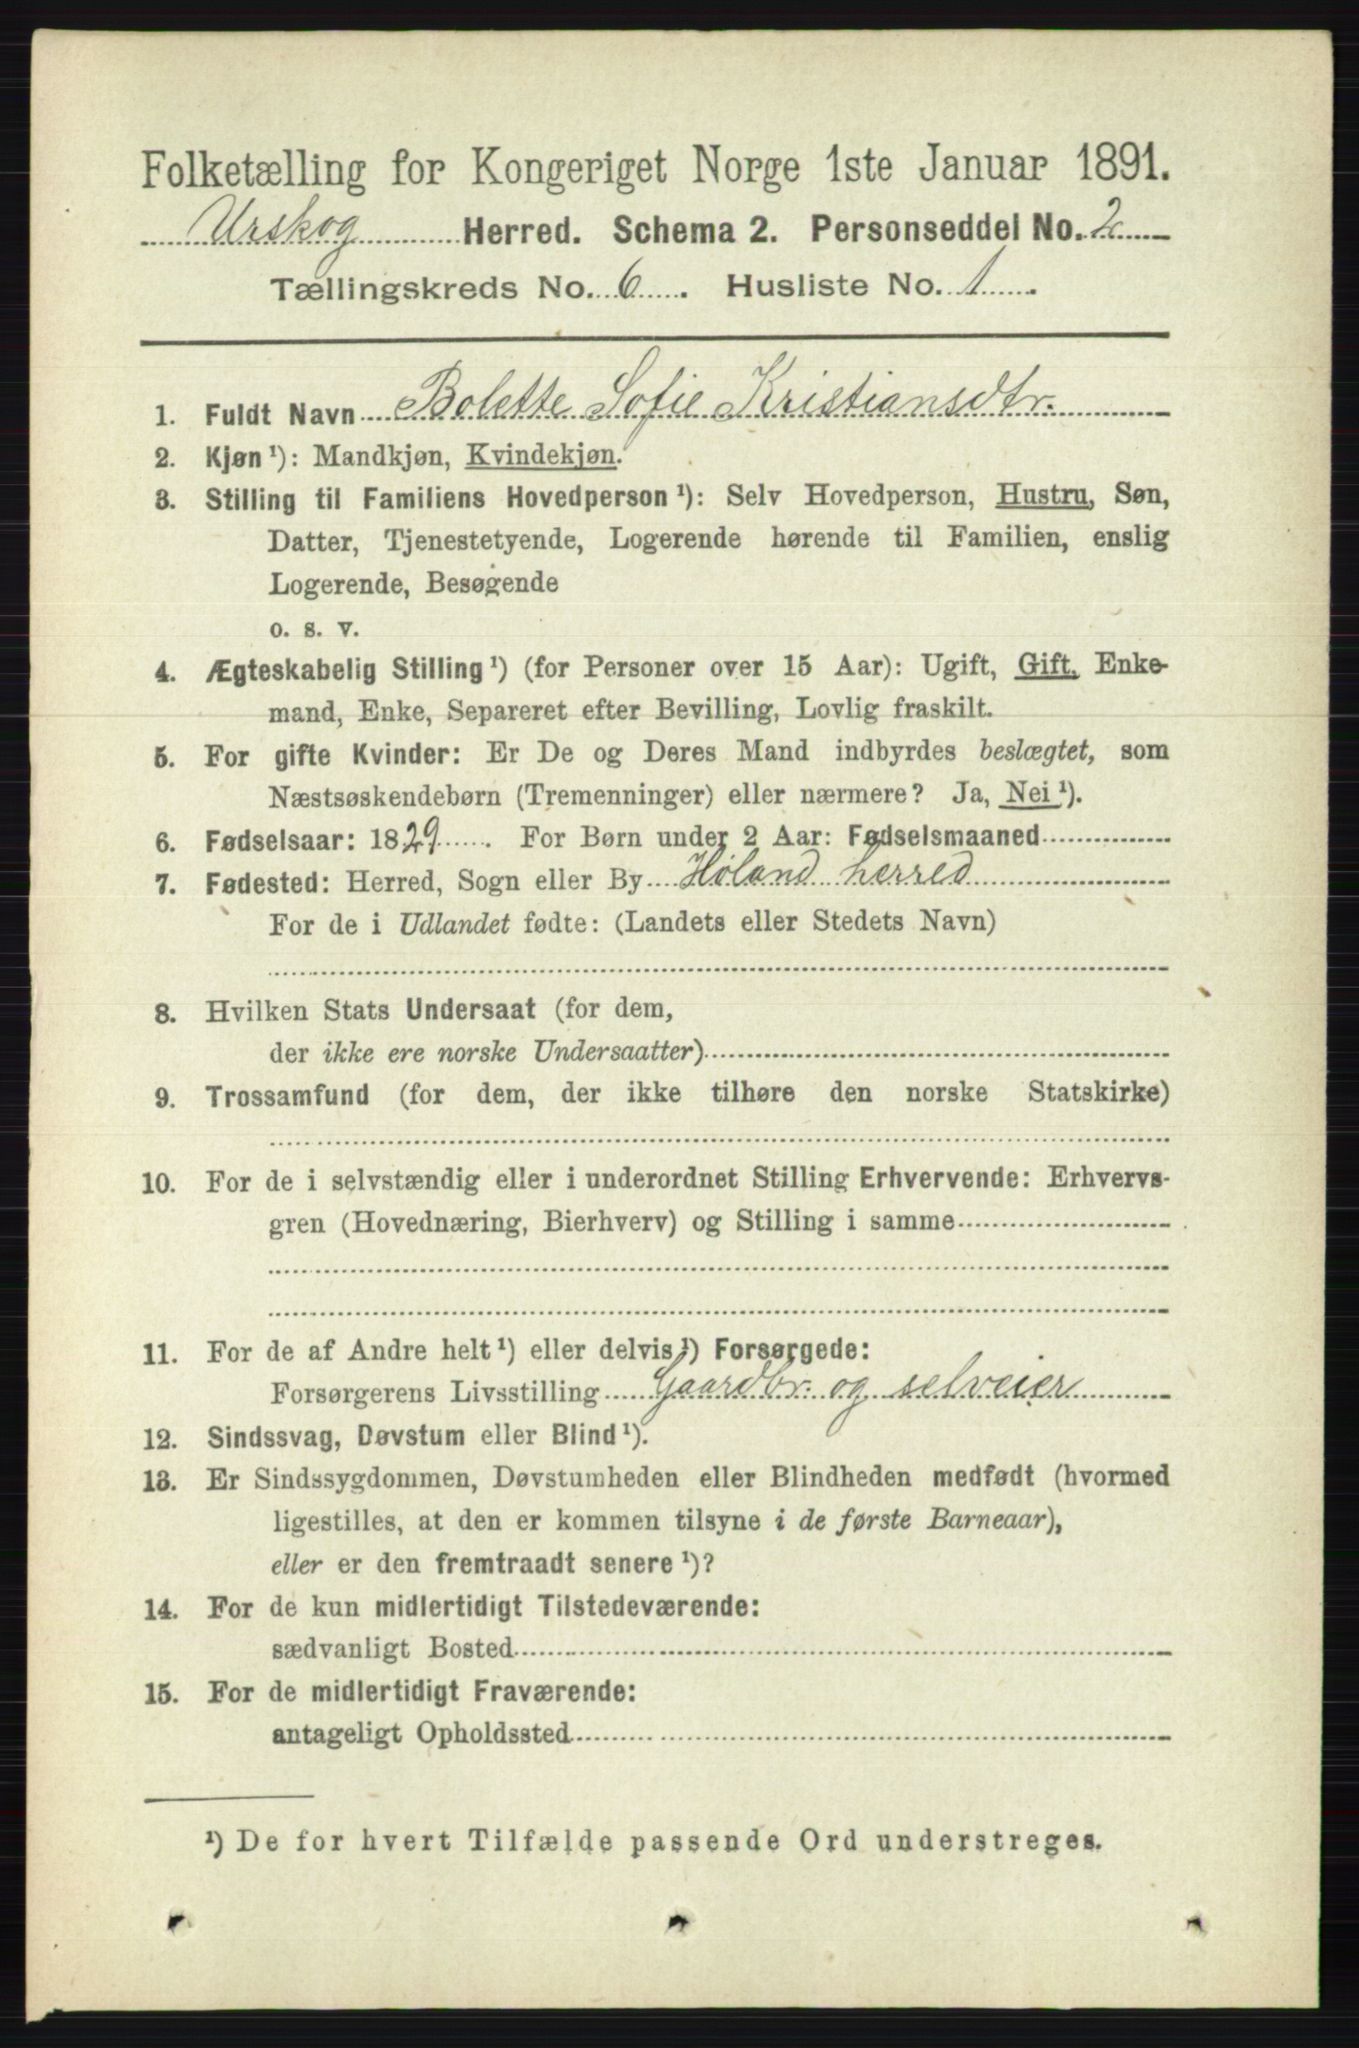 Folketælling for Kongeriget Norge 1ste Januar 1891.
Urskog Herred. Schema 2. Personseddel No. 2
Tællingskreds No. 6. Husliste No. 1.
1. Fuldt Navn Bolette Sofie Kristiansdtr.
2. Kjøn¹): Mandkjøn, Kvindekjøn.
3. Stilling til Familiens Hovedperson¹): Selv Hovedperson, Hustru, Søn,
Datter, Tjenestetyende, Logerende hørende til Familien, enslig
Logerende, Besøgende
o. s. v.
4. Ægteskabelig Stilling¹) (for Personer over 15 Aar): Ugift, Gift, Enke-
mand, Enke, Separeret efter Bevilling, Lovlig fraskilt.
5. For gifte Kvinder: Er De og Deres Mand indbyrdes beslægtet, som
Næstsøskendebørn (Tremenninger) eller nærmere? Ja, Nei¹).
6. Fødselsaar: 1829. For Børn under 2 Aar: Fødselsmaaned
7. Fødested: Herred, Sogn eller By Høland herred
For de i Udlandet fødte: (Landets eller Stedets Navn)
8. Hvilken Stats Undersaat (for dem,
der ikke ere norske Undersaatter)
9. Trossamfund (for dem, der ikke tilhøre den norske Statskirke)
10. For de i selvstændig eller i underordnet Stilling Erhvervende: Erhvervs-
gren (Hovednæring, Bierhverv) og Stilling i samme
11. For de af Andre helt¹) eller delvis¹) Forsørgede:
Forsørgerens Livsstilling Gaardbr. og selveier
12. Sindssvag, Døvstum eller Blind¹).
13. Er Sindssygdommen, Døvstumheden eller Blindheden medfødt (hvormed
ligestilles, at den er kommen tilsyne i de første Barneaar),
eller er den fremtraadt senere¹)?
14. For de kun midlertidigt Tilstedeværende:
sædvanligt Bosted
15. For de midlertidigt Fraværende:
antageligt Opholdssted
¹) De for hvert Tilfælde passende Ord understreges.